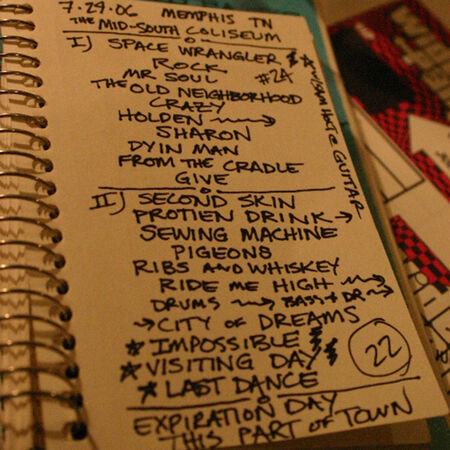 7.29.06 MEMPHIS TN
THE MID-SOUTH COLISEUM
I) SPACE WRANGLER
ROCK
MR SOUL #24
THE OLD NEIGHBORHOOD
CRAZY
HOLDEN →
SHARON
DYIN MAN
FROM THE CRADLE
GIVE
* w/SAM HOLT @ GUITAR
II) SECOND SKIN
PROTIEN DRINK →
SEWING MACHINE
PIGEONS
RIBS AND WHISKEY
RIDE ME HIGH →
DRUMS → BASS + DR →
→ CITY OF DREAMS
* IMPOSSIBLE
* VISITING DAY
* LAST DANCE
22
EXPIRATION DAY
THIS PART OF TOWN